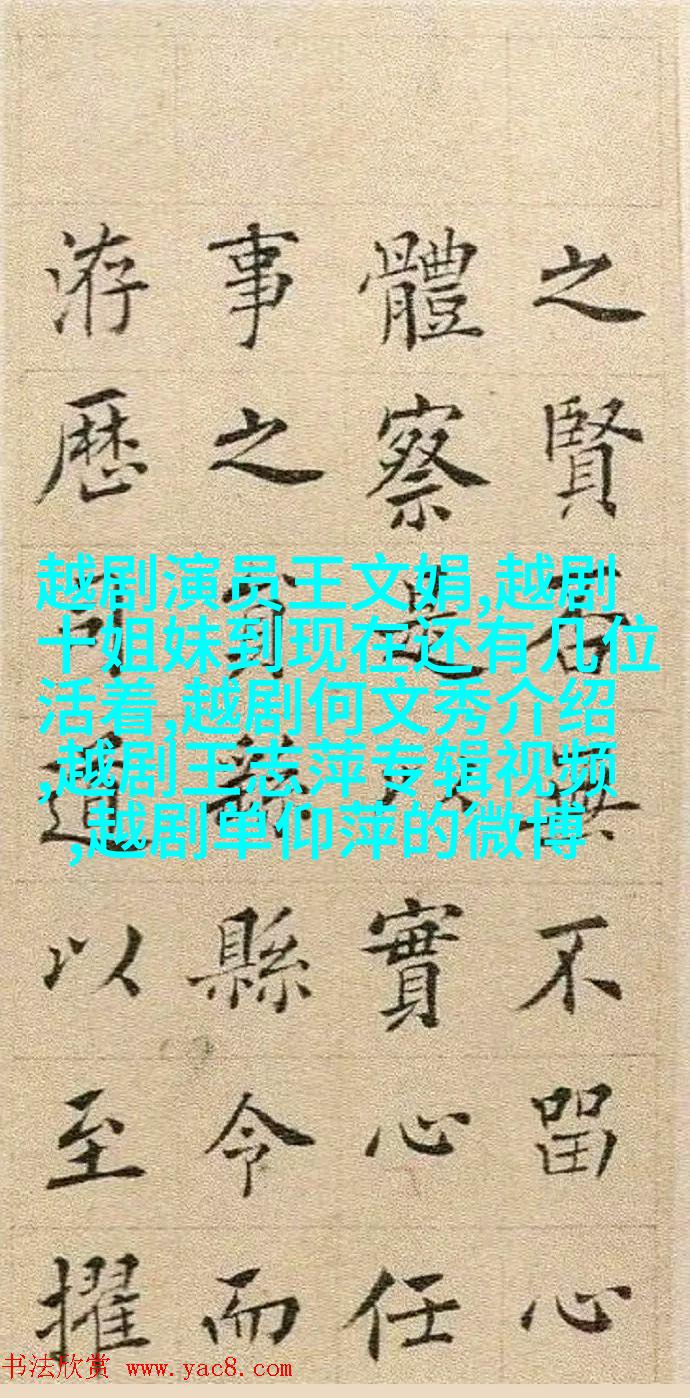 之賢不留心
體察是實心任
事之縣令而
洊厯司道以至擢
越剧演员王文娟,越剧
十姐妹到现在还有几位
活着,越剧何文秀介绍
,越剧王志萍专辑视频
,越剧单仰萍的微博
书法欣赏 www.yac8.com